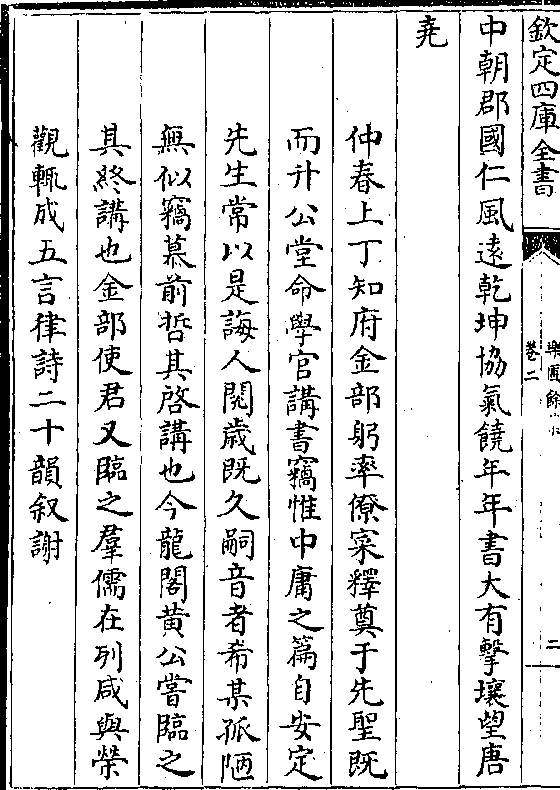 欽定四庫全書
樂圃餘
卷二
二
中朝郡國仁風遠乾坤協氣饒年年書大有擊壤望唐
堯
仲春上丁知府金部躬率僚寀釋奠于先聖既
而升公堂命學官講書竊惟中庸之篇自安定
先生常以是誨人閲歳既久嗣音者希某孤陋
無似竊慕前哲其啓講也今龍閣黄公嘗臨之
其終講也金部使君又臨之羣儒在列咸與榮
觀輒成五言律詩二十韻叙謝